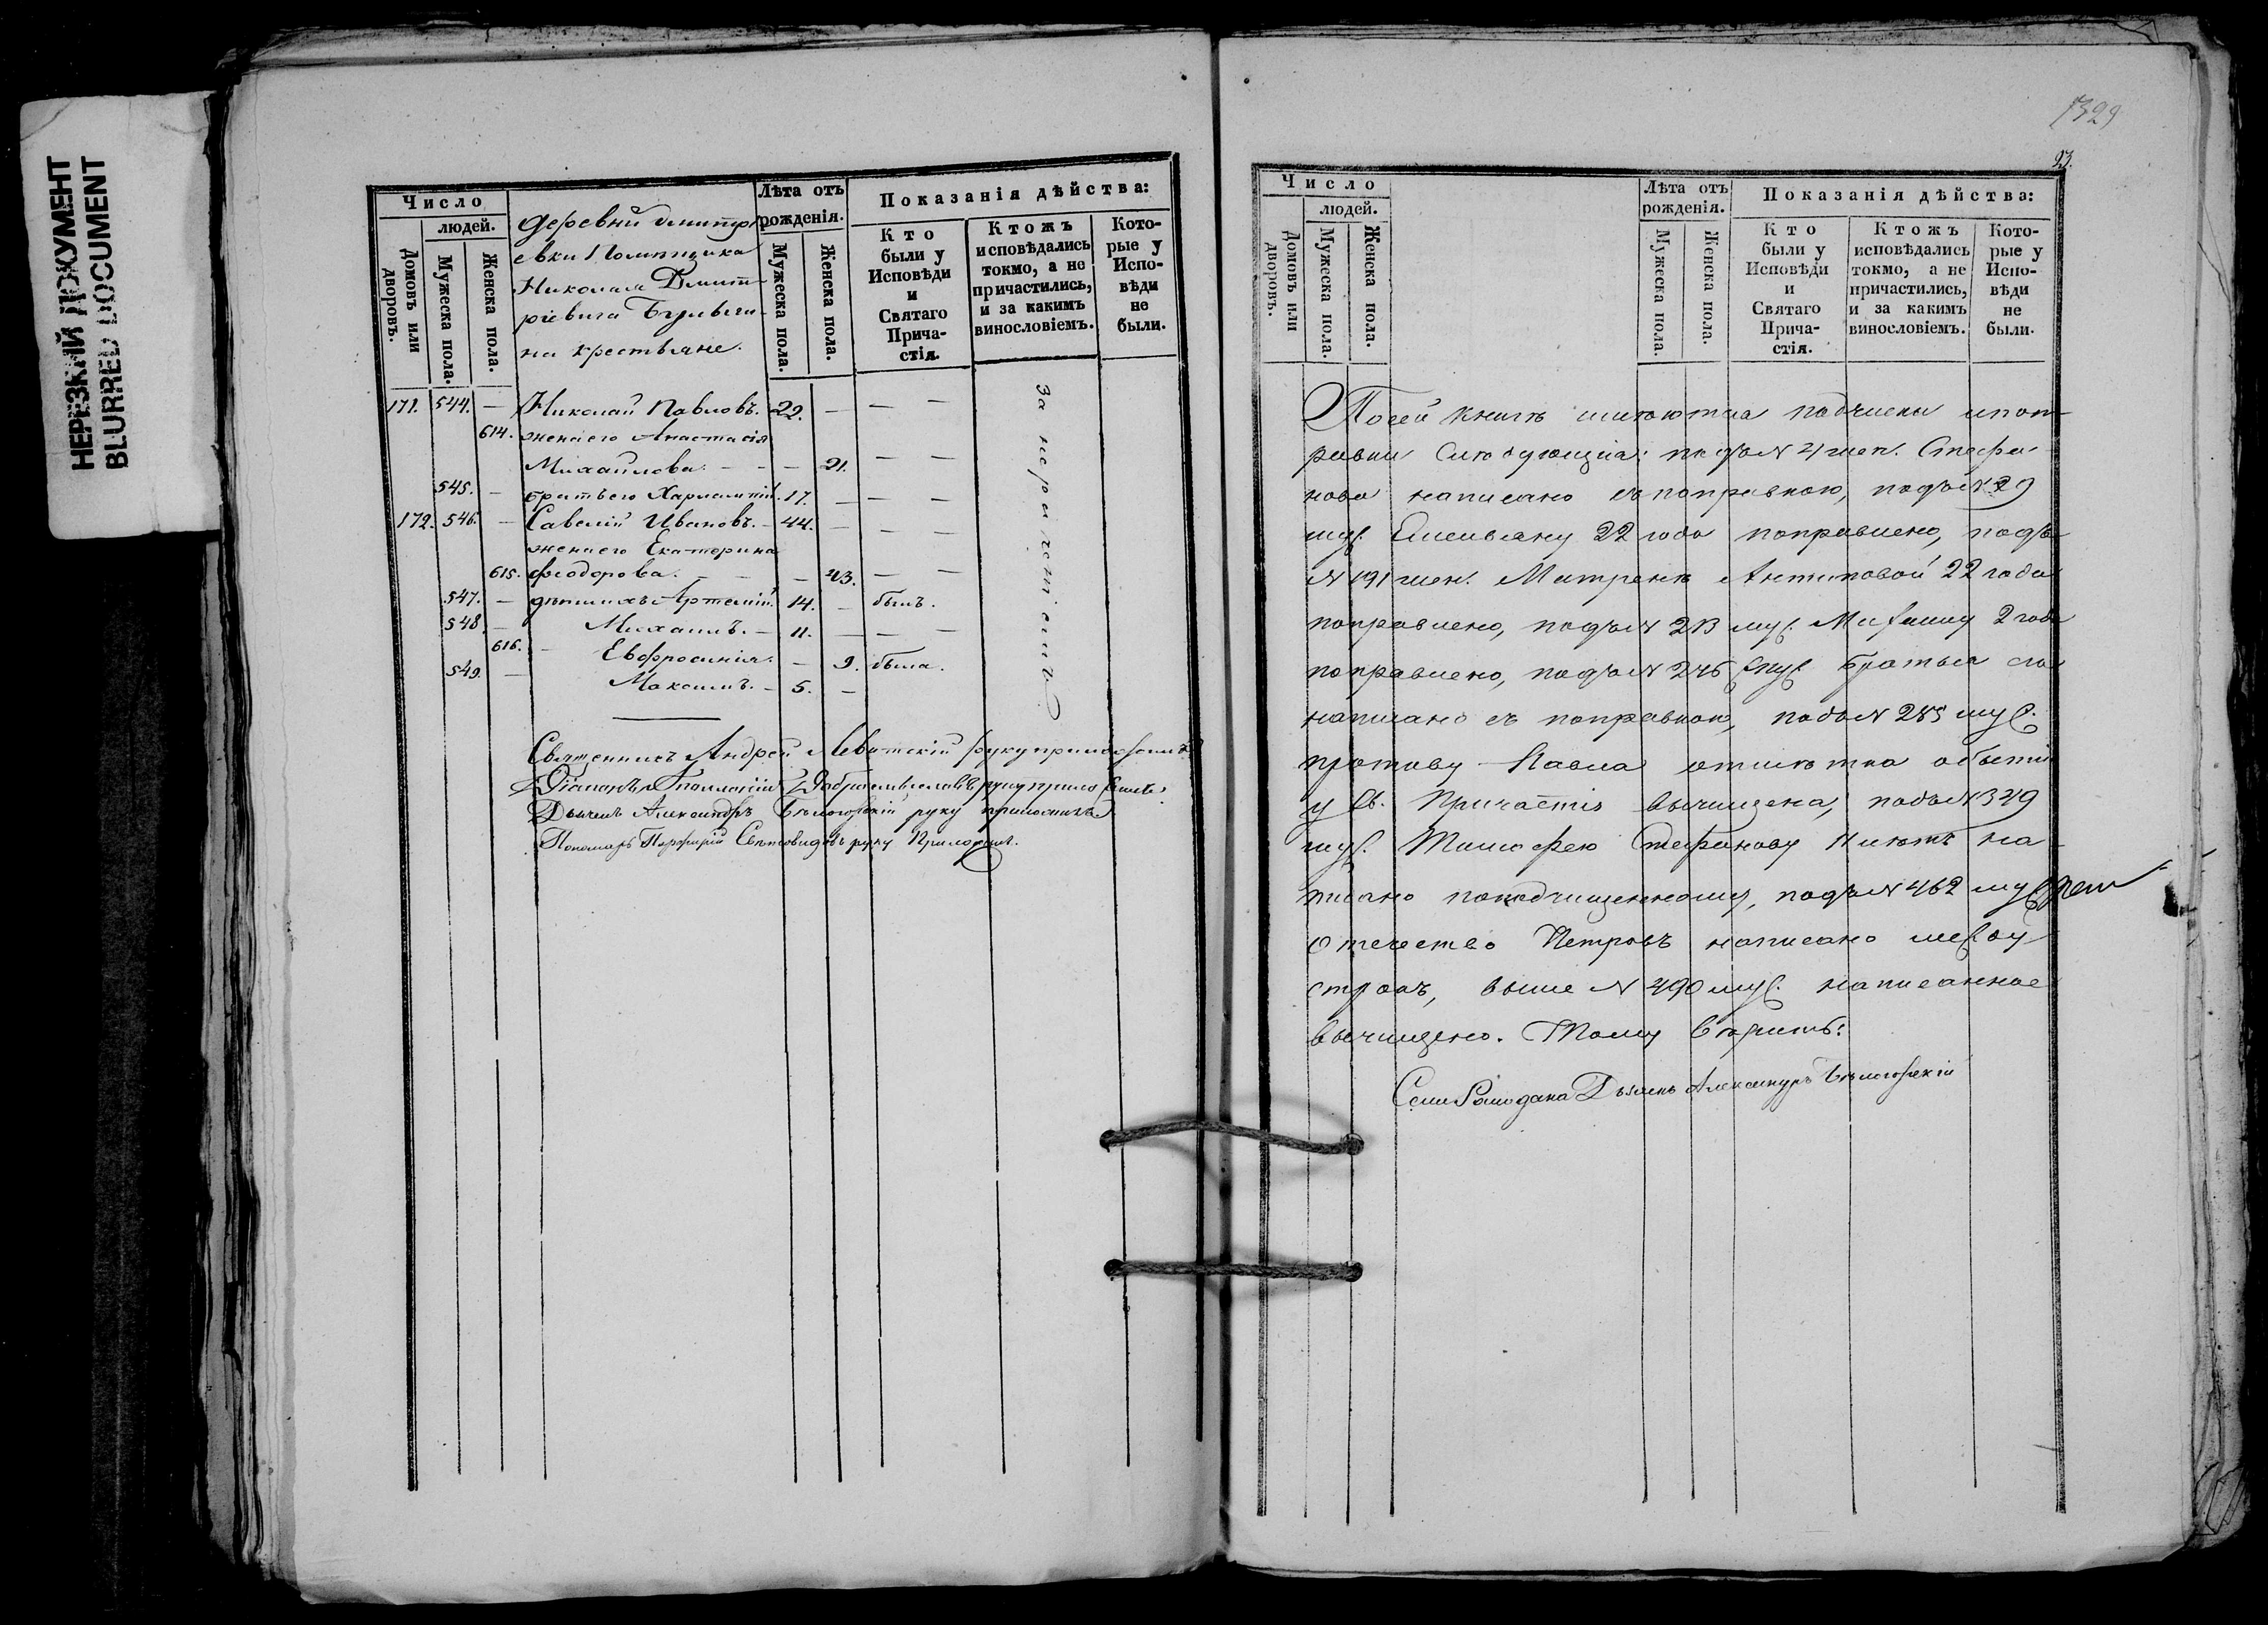 НЕРЕЗКИЙ ДОКУМЕНТ
BLURRED DOCUMENT
Число
людей.
Домовъ или дворовъ.
Мужеска пола.
Женска пола.
деревни Дмитрі
евки Помпщика
Николая Дмит-
ріевича
на крестьяне.
Лѣта отъ рожденія.
Мужеска пола.
Женска пола.
Показанія дѣйства:
Кто были у Исповѣди и Святаго Прича-стія.
Ктожъ исповѣдались токмо, а не причастились, и за какимъ винословіемъ.
Кото-рые у Испо-вѣди не были.
171. 544. — Николай Павловъ. 22. — — —
614. жена его Анастасія
Михайлова. — — — 21. — —
545. — братъ его Харлампій. 17. — — —
172. 546. — Савелій Ивановъ. — 44. — — —
жена его Екатерина
615. Феодорова. — — — 43. — —
547. — дѣти ихъ Артемій. 14. — былъ.
548. — Михаилъ. — 11. — — —
616. — Евфросинія. — 9. была.
549. — Максимъ. — 5. —
за нераченіемъ
Священникъ Андрей Левитскій руку приложилъ
Діаконъ Добромысловъ руку приложилъ
Дьячекъ Александръ Бѣлогорскій руку приложилъ
Пономарь Порфирій Свѣтовидовъ руку Приложилъ.
1329
23.
Число
людей.
Домовъ или дворовъ.
Мужеска пола.
Женска пола.
Лѣта отъ рожденія.
Мужеска пола.
Женска пола.
Показанія дѣйства:
Кто были у Исповѣди и Святаго Прича-стія.
Ктожъ исповѣдались токмо, а не причастились, и за какимъ винословіемъ.
Кото-рые у Испо-вѣди не были.
По сей книгѣ имѣются подчиски и поп-
равки Слѣдующія: подъ № 4 жен. Стефа-
нова написано съ поправкою, подъ № 29
муж. Емельяну 22 года поправлено, подъ
№ 191 жен. Матренѣ Антиповой 22 года
поправлено, подъ № 213 муж. 2 года
поправлено, подъ № 246 муж братья его
написано съ поправкою, подъ № 285 муж.
противу Павла отмѣтка о бытіи
у Св. Причастія вычищена, подъ № 349
муж. Тимофею Стефанову 11 лѣтъ на-
писано по подчищенному, подъ № 462 муж
отечество Петровъ написано между
строкъ, выше № 490 муж. написанное
вычищено. Тому вѣрить:
Села Ромодана Дьячекъ Александръ Бѣлогорскій